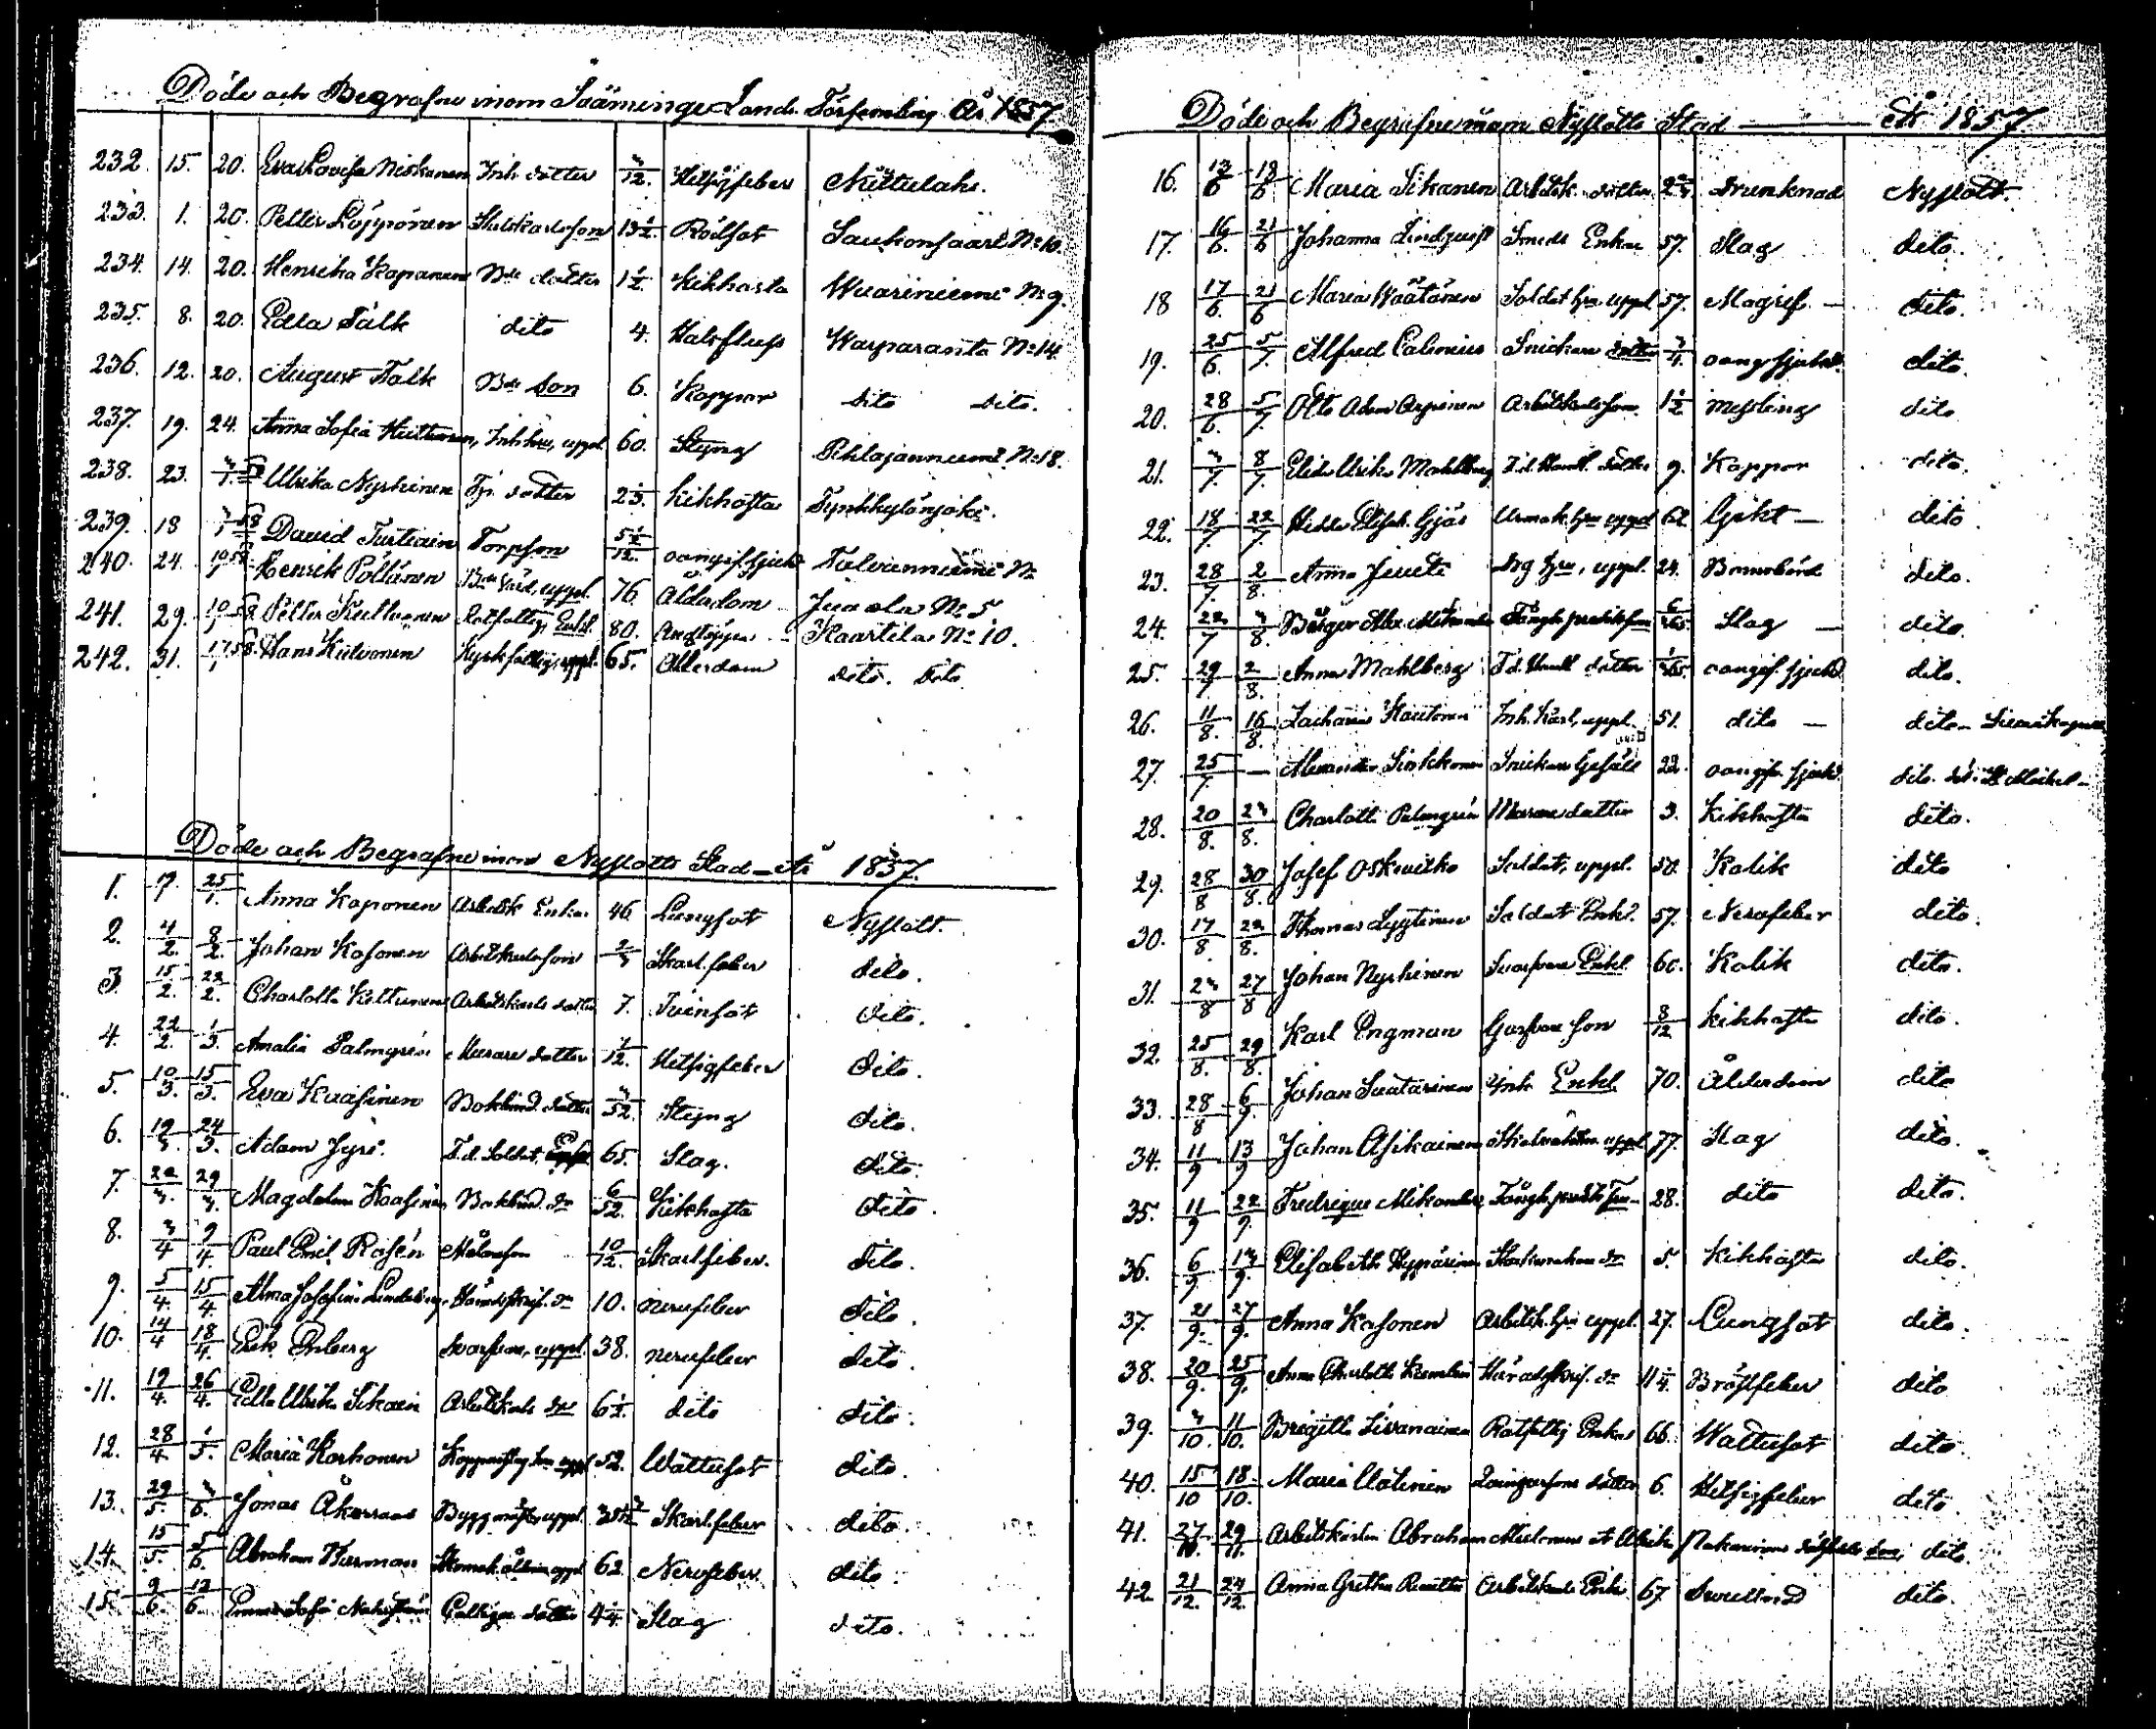 Döde och Begrafne inom Sääminge Lands Församling År 1857
232. 15. 20. Eva Lovisa Niskanen Inh. dotter 3/12. Hetsigfeber Niittulaks.
233. 1. 20. Petter Löppönen Statskarlsson 13 1/2. Rödsot Saukonsaari No 10.
234. 14. 20. Henrika Kapanen Bde dotter 1 1/2. Kikhosta Wuoriniemi No 9.
235. 8. 20. Edla Falk dito 4. Halsfluss Warparanta No 14.
236. 12. 20. August Falk Bde Son 6. Koppor dito dito.
237. 19. 24. Anna Sofia Huttunen, Inh. hru, uppl. 60. Styng Pihlajaniemi No 18.
238. 23. 3/1 58 Ulrika Nyrhinen Tp. dotter Kikhosta Pynkkylänjoki.
239. 18 3/1 58 David Turtiain Torpson oangif. sjukd. Talvianniemi No
240. 24. 10/1 58 Henrik Pöllänen Bde Värd, uppl. 76. Ålderdom Juvola No 5
241. 29. 10/1 58. Petter Kultvonen Rotfattig, Enkl. 80. Andtäppa Kaartila No 10.
242. 31. 17/1 58. Hans Kiilvonen Kyrkfattig, uppl. 65. Ålderdom dito. dito
Döde och Begrafne inom Nyslotts Stad År 1857.
1. 17. 25/1. Anna Kaponen Arbetsk. Enka 46 Lungsot Nyslott.
2. 4/2. 8/2. Johan Kosonen Arbetskarlsson Skarl. feber dito.
3. 15/2. 22/2. Charlotta Kettunen Arbetskarls dotter 7. Tvinsot dito.
4. 22/2. 1/3. Amalia Palmgrén Murare dotter 7/12. Hetsigfeber dito.
5. 10/3. 15/3. Eva Kaasinen Bokbind. dotter 3/52. Styng dito.
6. 19/3. 24/3. Adam Jyri. F.d. Soldat, 65. Slag. dito.
7. 22/3. 29/3. Magdalena Kaasinen Bokbind. dr 6/52. Kikhosta dito.
8. 3/4 9/4. Paul Emil Rosén Målareson 10/12. Skarlfeber. dito.
9. 5/4. 15/4. Alma Josefina Lundeberg, Häradsskrif. dr 10. nervfeber dito.
10. 14/4 18/4. Erik Enberg Svarfvare, uppl. 38. nervfeber dito.
11. 19/4. 26/4. Edla Ulrika Sikain Arbetskarls dr 6 1/2. dito dito.
12. 28/4 1/5. Maria Korhonen Kopparslag. hru uppl 52. Wattusot dito.
13. 29/5. 3/6. Jonas Åkerman Byggmäst, uppl. Skarl.feber dito.
14. 15/5. 5/6. Abraham Herrman Skomak. uppl 62. Nervfeber. dito.
15. 9/6. 12/6. Sofia dotter 4 1/4. Slag dito.
Döde och Begrafne inom Nyslotts Stad År 1857
16. 13/6 18/6 Maria Sikanen Arbetsk. dotter Drunknad Nyslott.
17. 16/6. 21/6 Johanna Lindqvist Smeds Enka 57. Slag dito.
18 17/6. 21/6 Maria Väätänen Soldat hru uppl 57. Magref. dito.
19. 25/6. 5/7. Alfred Calenius Snickare 3/4. oang sjukd. dito.
20. 28/6. 5/7. Otto Adam Arponen Arbetskarlsson. 1 1/2 Messling dito
21. 3/7. 8/7. Elida Ulrika Mahlberg F.d. Handl. dotter 9. Koppor dito.
22. 18/7. 22/7. Hedda Elisab. Gjös Urmak. hru uppl 62 Gikt dito.
23. 28/7. 2/8. Anna Juuti Drg hru, uppl. 24. Barnsbörd dito.
24. 22/7 3/8. Birger Alex. Mikander Fängh. predikson Slag dito.
25. 29/7 2/8. Anna Mahlberg F.d. Handl dotter oangif. sjukd dito.
26. 11/8. 16/8. Zacharias Hautonen Inh. Karl, uppl. 51. dito dito
27. 25/7. Alexander Sinkkonen Snickare Gesäll 22. oangif. sjukd. dito. St Michel
28. 20/8. 23/8. Charlotta Palmgrén Murare dotter 3. Kikhosta dito.
29. 28/8 30/8. Josef Oskvitko Soldat, uppl. 50. Kolik dito
30. 17/8. 22/8. Thomas Lyytinen Soldat Enkl. 57. Nervfeber dito.
31. 23/8 27/8 Johan Nyrhinen Svarfvare Enkl. 60. Kolik dito.
32. 25/8. 29/8. Karl Engman Garfvare son 8/12 Kikhosta dito.
33. 28/8 6/9. Johan Suutarinen Inh. Enkl 70. Ålderdom dito
34. 11/9 13/9 Johan Asikainen uppl 77. Slag dito.
35. 11/9 22/9. Fredrique Mikander, Fängh. predik. Fru 28. dito dito.
36. 6/9. 13/9. Elisabeth Hyppärinen dr 5. Kikhosta dito.
37. 21/9. 27/9. Anna Kosonen Arbetsk. hru uppl. 27. Lungsot dito.
38. 20/9. 25/9. Anna Charlotta Häradsskrif. dr 11 1/4. Bröstfeber dito
39. 3/10. 11/10. Brigitta Sivonainen Rotfattig Enka 66. Wattusot dito.
40. 15/10 18/10. Maria Uotinen dotter 6. Hetsigfeber dito
41. 27/11. 29/11. Arbetskarlen Abraham et Ulrika dito.
42. 21/12. 24/12. Anna Gretha Rautta Arbetskarls Enka 67. Svullnad dito.